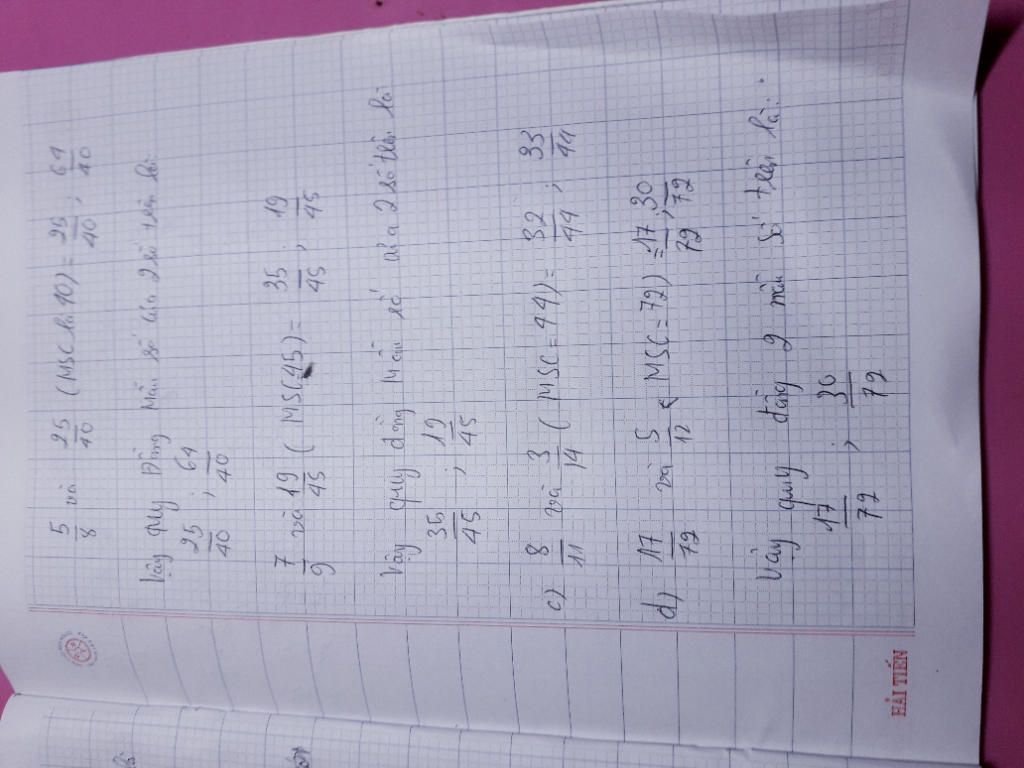 5/8 và 25/40 (MSC là 40) = 25/40 ; 64/40
Vậy quy đồng mẫu số của 2 số trên là
25/40 ; 64/40
7/9 và 19/45 ( MSC 45) = 35/45 ; 19/45
Vậy quy đồng mẫu số của 2 số trên là
35/45 ; 19/45
c) 8/11 và 3/14 ( MSC = 44) = 32/44 ; 33/44
d) 17/72 và 5/12 ( MSC = 72) = 17/72 ; 30/72
Vậy quy đồng 2 mẫu số trên là:
17/72 ; 30/72
HẢI TIẾN